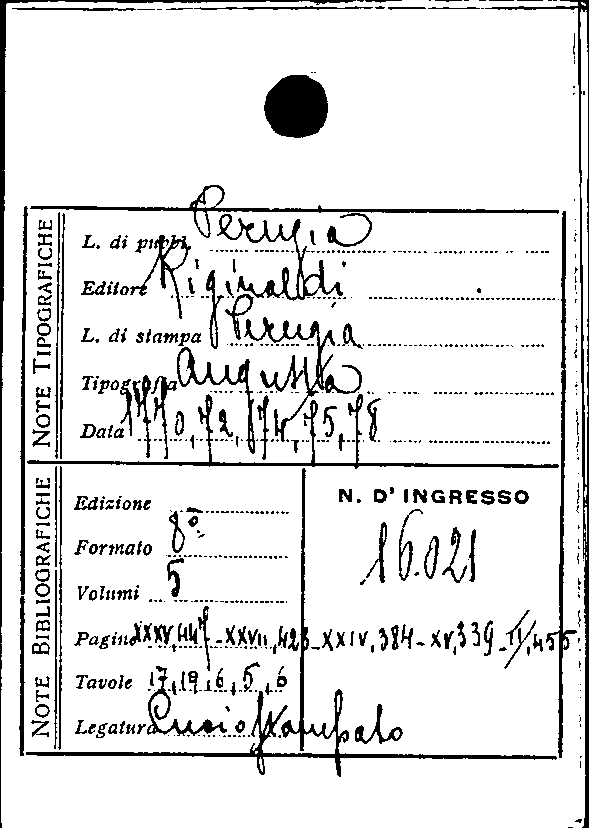 NOTE TIPOGRAFICHE
L. di pubbl. Perugia
Editore Riginaldi
L. di stampa Perugia
Tipografia Augusta
Data 1770, 72, 74, 75, 78
NOTE BIBLIOGRAFICHE
Edizione
Formato 8º
Volumi 5
Pagine XXXV,447-XXVII,423-XXIV,384-XV,339-II,455
Tavole 17,19,6,5,6
Legatura Cuoio stampato
N. D' INGRESSO
16.021